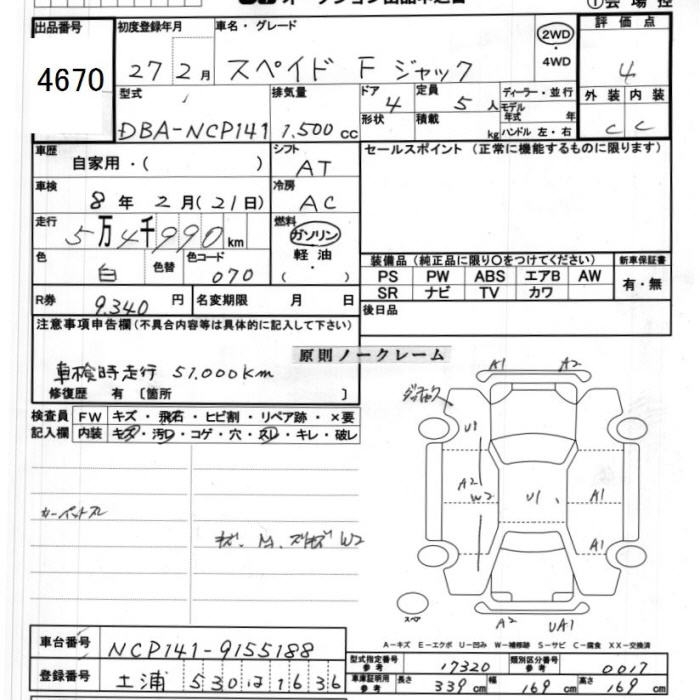 オークション出品申込書
①会場控
出品番号
4670
初度登録年月
27 2月
車名・グレード
スペイド F ジャック
2WD
・
4WD
評価点
4
外装 内装
C C
型式
DBA-NCP141
排気量
1,500 cc
ドア
4
形状
定員
5 人
積載
kg
ディーラー・並行
モデル年式 年
ハンドル 左・右
車歴
自家用・( )
シフト
AT
セールスポイント (正常に機能するものに限ります)
車検
8年 2月(21日)
冷房
AC
走行
5万4千990km
燃料
ガソリン
軽油
( )
色
白
色替
色コード
070
装備品 (純正品に限り○をつけてください)
新車保証書
PS PW ABS エアB AW
SR ナビ TV カワ
有・無
R券
9,340円
名変期限 月 日
後日品
注意事項申告欄(不具合内容等は具体的に記入して下さい)
原則ノークレーム
車検時走行 51,000km
修復歴 有 〔箇所 〕
検査員
記入欄
FW キズ・飛石・ヒビ割・リペア跡・×要
内装 キズ・汚レ・コゲ・穴・スレ・キレ・破レ
キズ、 W2
A1 A2
U1
A2
W2
U1
A1
A1
スペア
A2 UA1
A-キズ E-エクボ U-凹み W-補修跡 S-サビ C-腐食 XX-交換済
車台番号
NCP141-9155188
登録番号
土浦 530 1636
型式指定番号
参考
17320
類別区分番号
参考
0017
車庫証明用
参考
長さ 339cm 幅 169cm 高さ 169cm